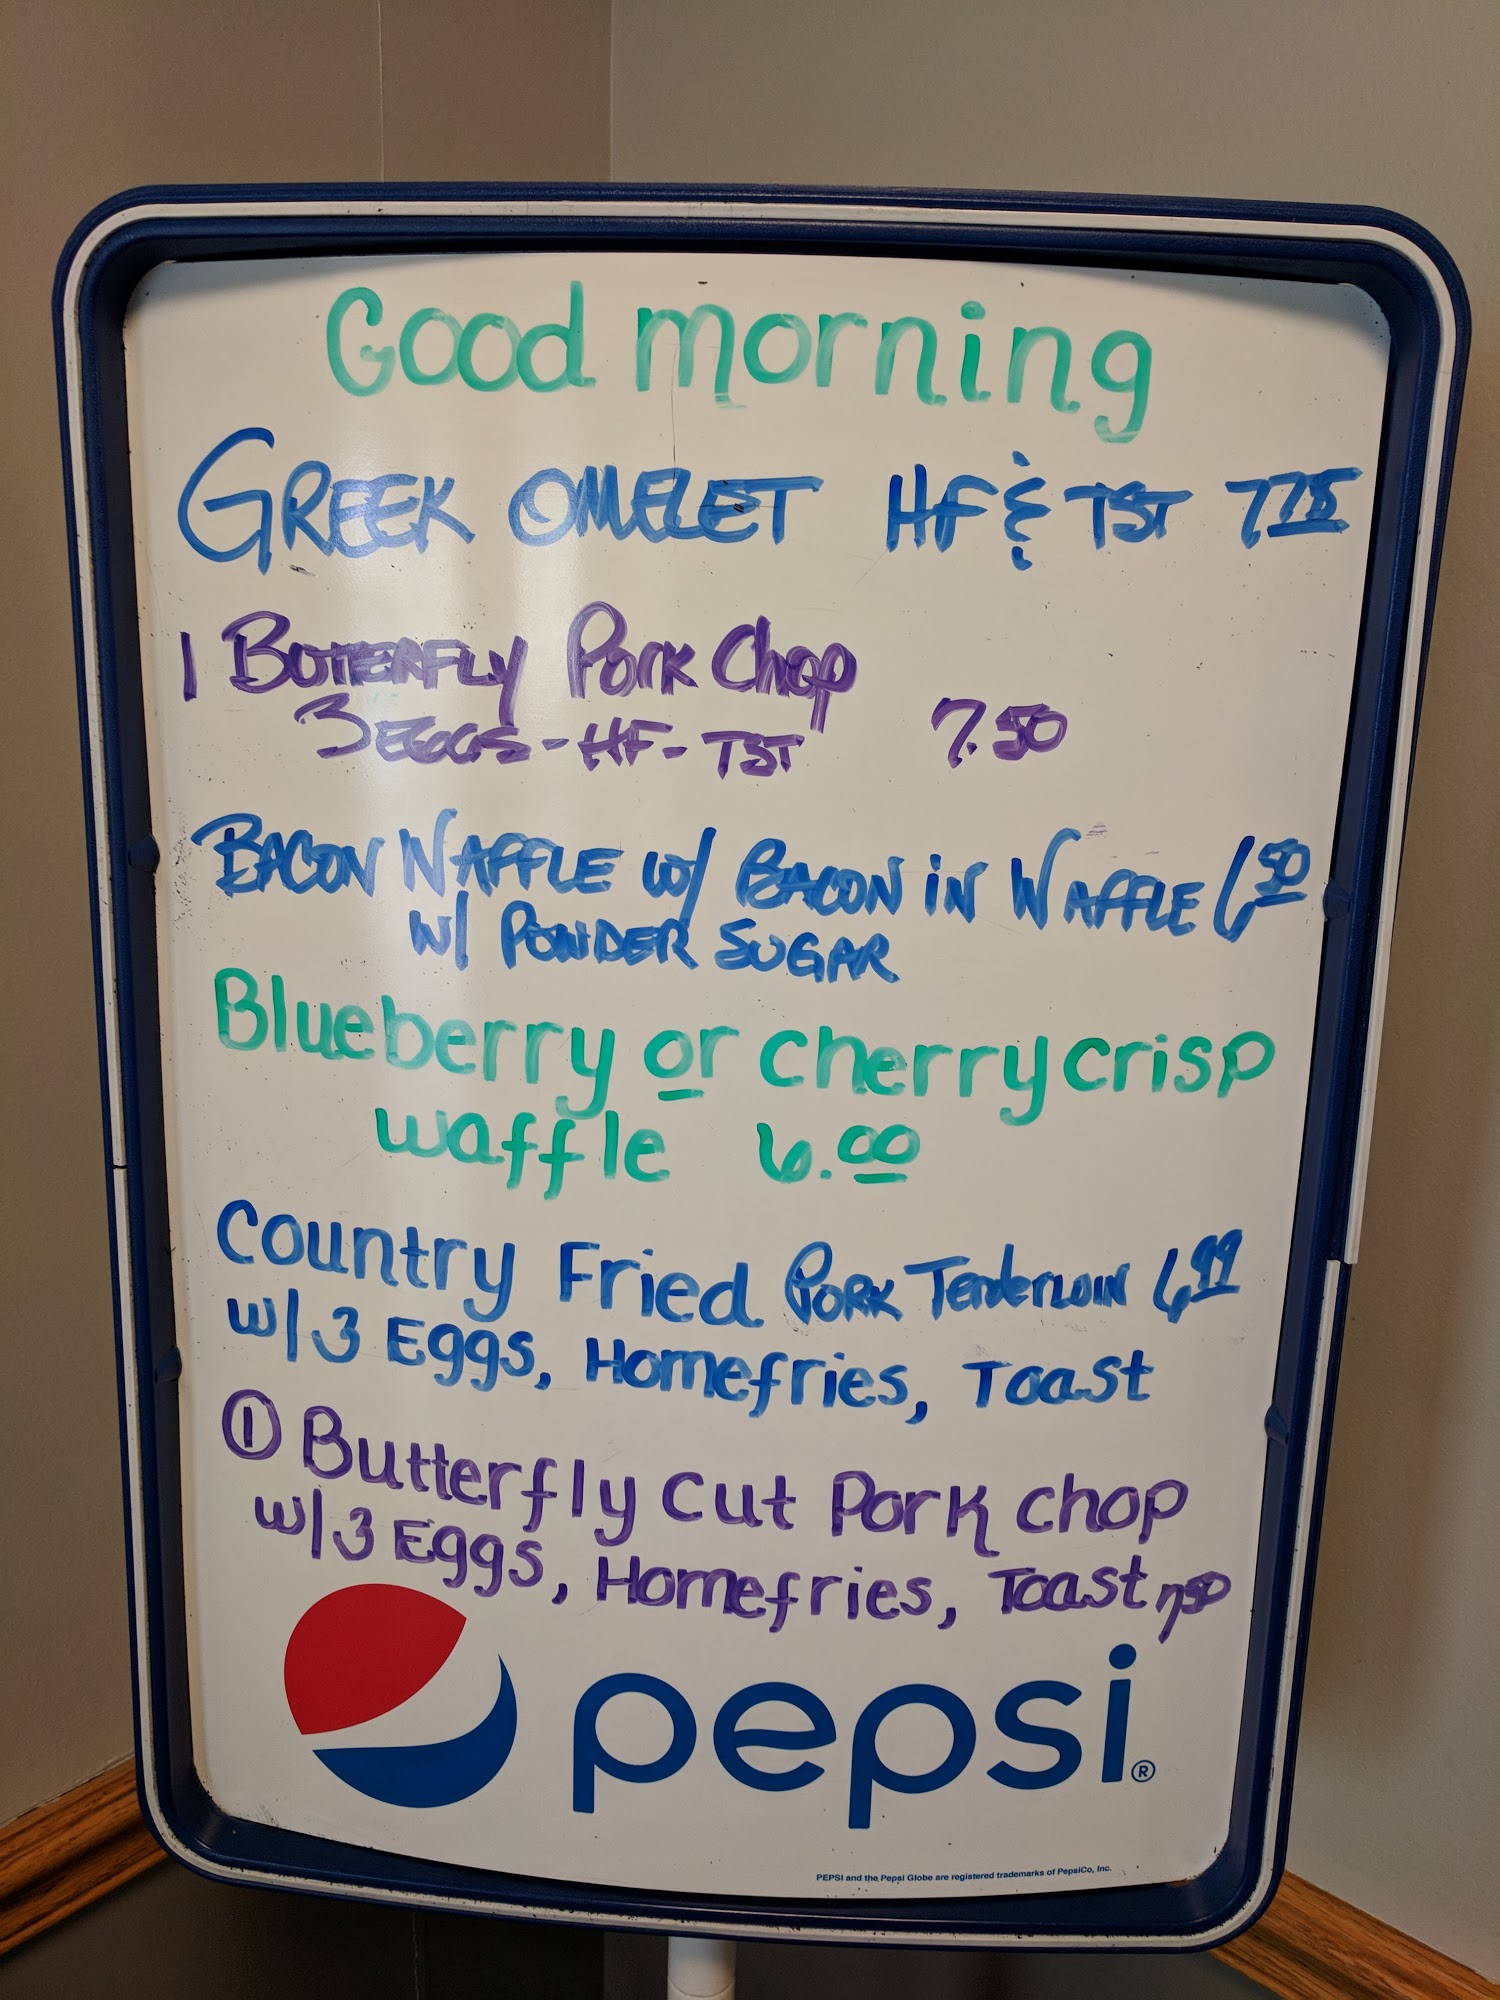 Good morning
GREEK OMELET HF & TST 7.75
1 BUTTERFLY Pork Chop
3 EGGS - HF - TST 7.50
BACON WAFFLE w/ BACON IN WAFFLE 6.50
w/ POWDER SUGAR
Blueberry or cherry crisp
waffle 6.00
Country Fried PORK Tenderloin 6.99
w/ 3 Eggs, Homefries, Toast
① Butterfly Cut Pork chop
w/ 3 Eggs, Homefries, Toast 7.50
pepsi®
PEPSI and the Pepsi Globe are registered trademarks of PepsiCo, Inc.